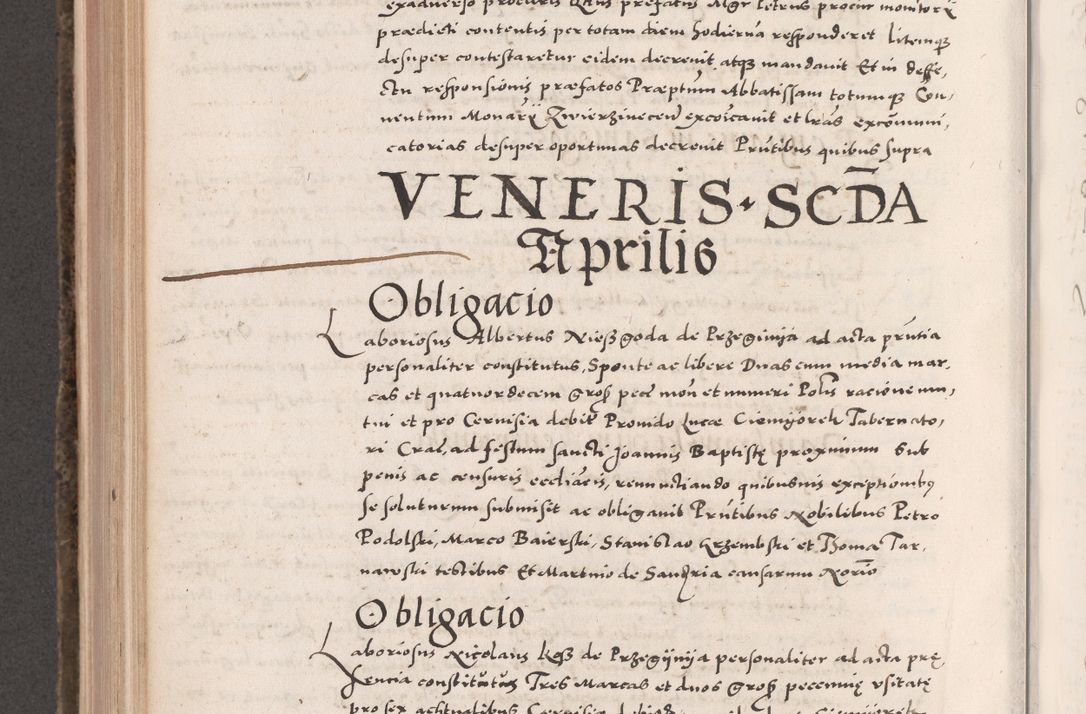 exadverso procuris Quis prefatus Mgr Petrus procur monitorÿ
prædicti contentis per totam diem hodierna responderet litemqe
desuper contestaretur eidem decrevit atqe mandavit Et in deffe,
ctu responsionis præfatos Præptum Abbatissam totumqe Con,
ventum Monarÿ Zwierzinecen excoicavit et lras excomuni,
catorias desuper oportunas decrevit Prntibus quibus supra
VENERIS · SCDA
Aprilis
Obligacio
Laboriosus Albertus Nieszgoda de Przeginija ad acta prntia
personaliter constitutus, Sponte ac libere Duas cum media mar,
cas et quatuordecem gross pecc mon et numeri Polis racione mu,
tui et pro Cervisia debit Provido Lucæ Ciemijorek Tabernato,
ri Crac, ad festum sancti Joannis Baptistę proximum sub
penis ac censuris ecclīacis, renunctiando quibusuis exceptionibus
se soluturum submisit ac obligavit Prntibus Nobilibus Petro
Podolski, Marco Baierski, Stanislao Grzembski et Thoma Tar,
nawski testibus Et Martino de causarum Norio
Obligacio
Laboriosus Nicolaus Kosz de Przegÿnija personaliter ad acta prę
sencia constitutus Tres Marcas et duos gross pecunię vsitatę
pro sex achtualibus Cervisię